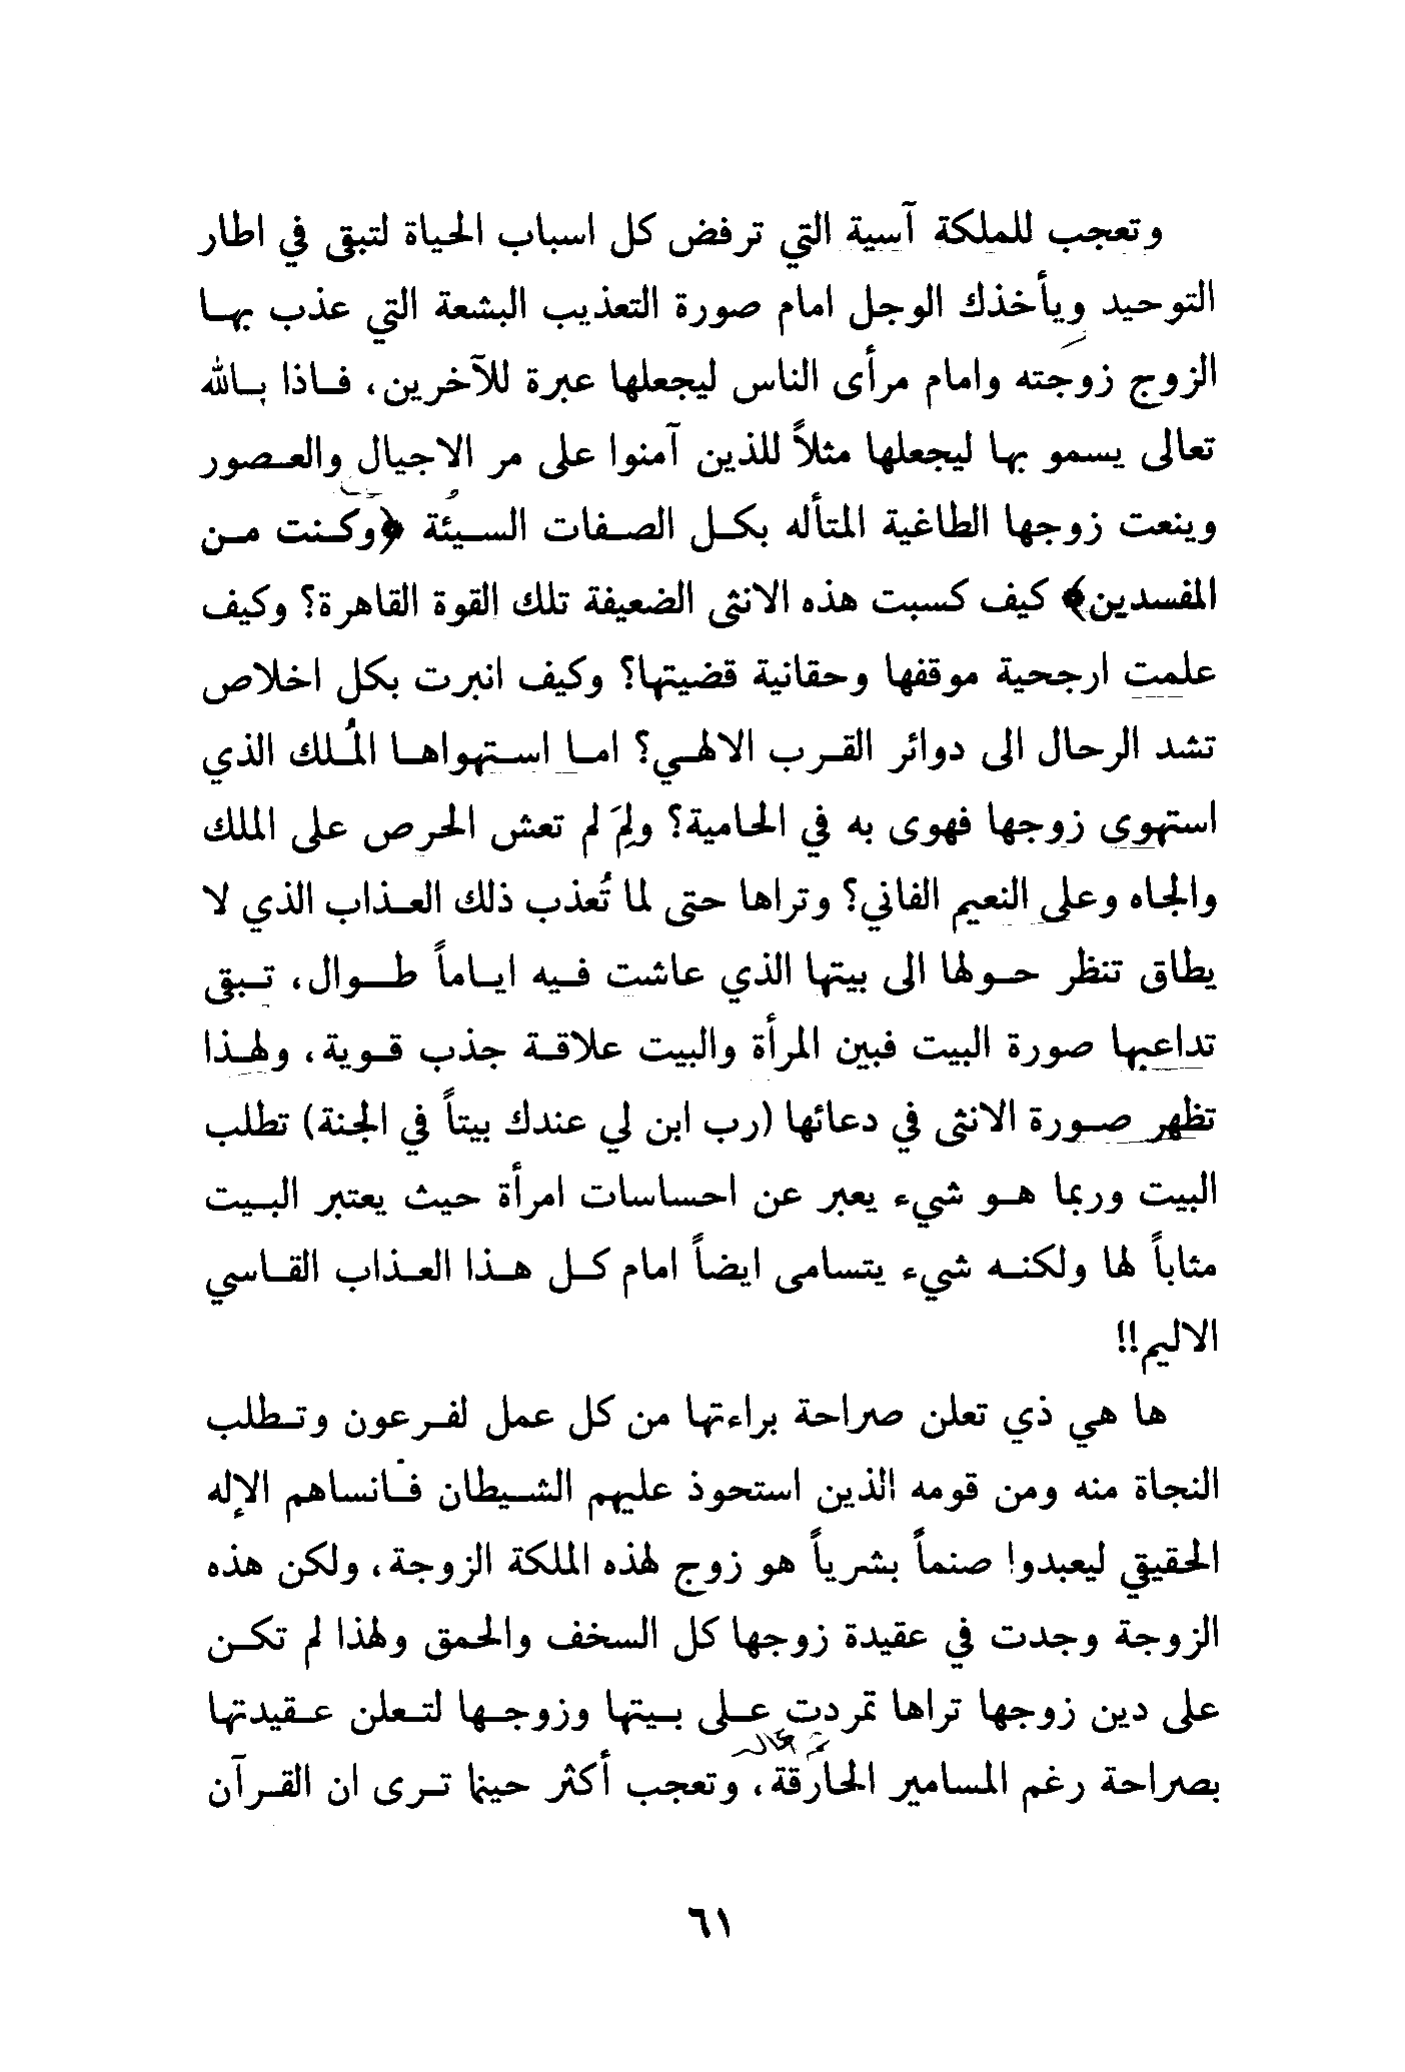 وتعجب للملكة آسية التي ترفض كل اسباب الحياة لتبقى في اطار
التوحيد ويأخذك الوجل امام صورة التعذيب البشعة التي عذب بهـا
الزوج زوجته وامام مرأى الناس ليجعلها عبرة للآخرين، فـاذا بـالله
تعالى يسمو بها ليجعلها مثلاً للذين آمنوا على مر الاجيال والعـصور
وينعت زوجها الطاغية المتأله بكـل الصـفات السـيئة ﴿وكـنت مـن
المفسدين﴾ كيف كسبت هذه الانثى الضعيفة تلك القوة القاهرة؟ وكيف
علمت ارجحية موقفها وحقانية قضيتها؟ وكيف انبرت بكل اخلاص
تشد الرحال الى دوائر القـرب الالهـي؟ امـا اسـتهواهـا المُـلك الذي
استهوى زوجها فهوى به في الحامية؟ ولِمَ لم تعش الحرص على الملك
والجاه وعلى النعيم الفاني؟ وتراها حتى لما تُعذب ذلك العـذاب الذي لا
يطاق تنظر حـولها الى بيتها الذي عاشت فـيه ايـاماً طـوال، تـبقى
تداعبها صورة البيت فبين المرأة والبيت علاقـة جذب قـوية، ولهـذا
تظهر صـورة الانثى في دعائها (رب ابن لي عندك بيتاً في الجنة) تطلب
البيت وربما هـو شيء يعبر عن احساسات امرأة حيث يعتبر البـيت
مثاباً لها ولكنـه شيء يتسامى ايضاً امام كـل هـذا العـذاب القـاسي
الاليم!!
ها هي ذي تعلن صراحة براءتها من كل عمل لفـرعون وتـطلب
النجاة منه ومن قومه الذين استحوذ عليهم الشـيطان فـانساهم الإله
الحقيقي ليعبدوا صنماً بشرياً هو زوج لهذه الملكة الزوجة، ولكن هذه
الزوجة وجدت في عقيدة زوجها كل السخف والحمق ولهذا لم تكـن
على دين زوجها تراها تمردت عـلى بـيتها وزوجـها لتـعلن عـقيدتها
بصراحة رغم المسامير الحارقة، وتعجب أكثر حينما تـرى ان القـرآن
٦١